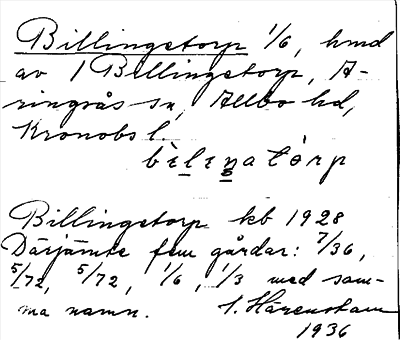 Billingstorp 1/6, hmd
av 1 Billingstorp, A-
ringsås sn, Allbo hd,
Kronobs l.
bìlinatórp
Billingstorp kb 1928
Därjämte fem gårdar: 7/36,
5/72, 5/72, 1/6, 1/3 med sam-
ma namn. I. Härenstam
1936